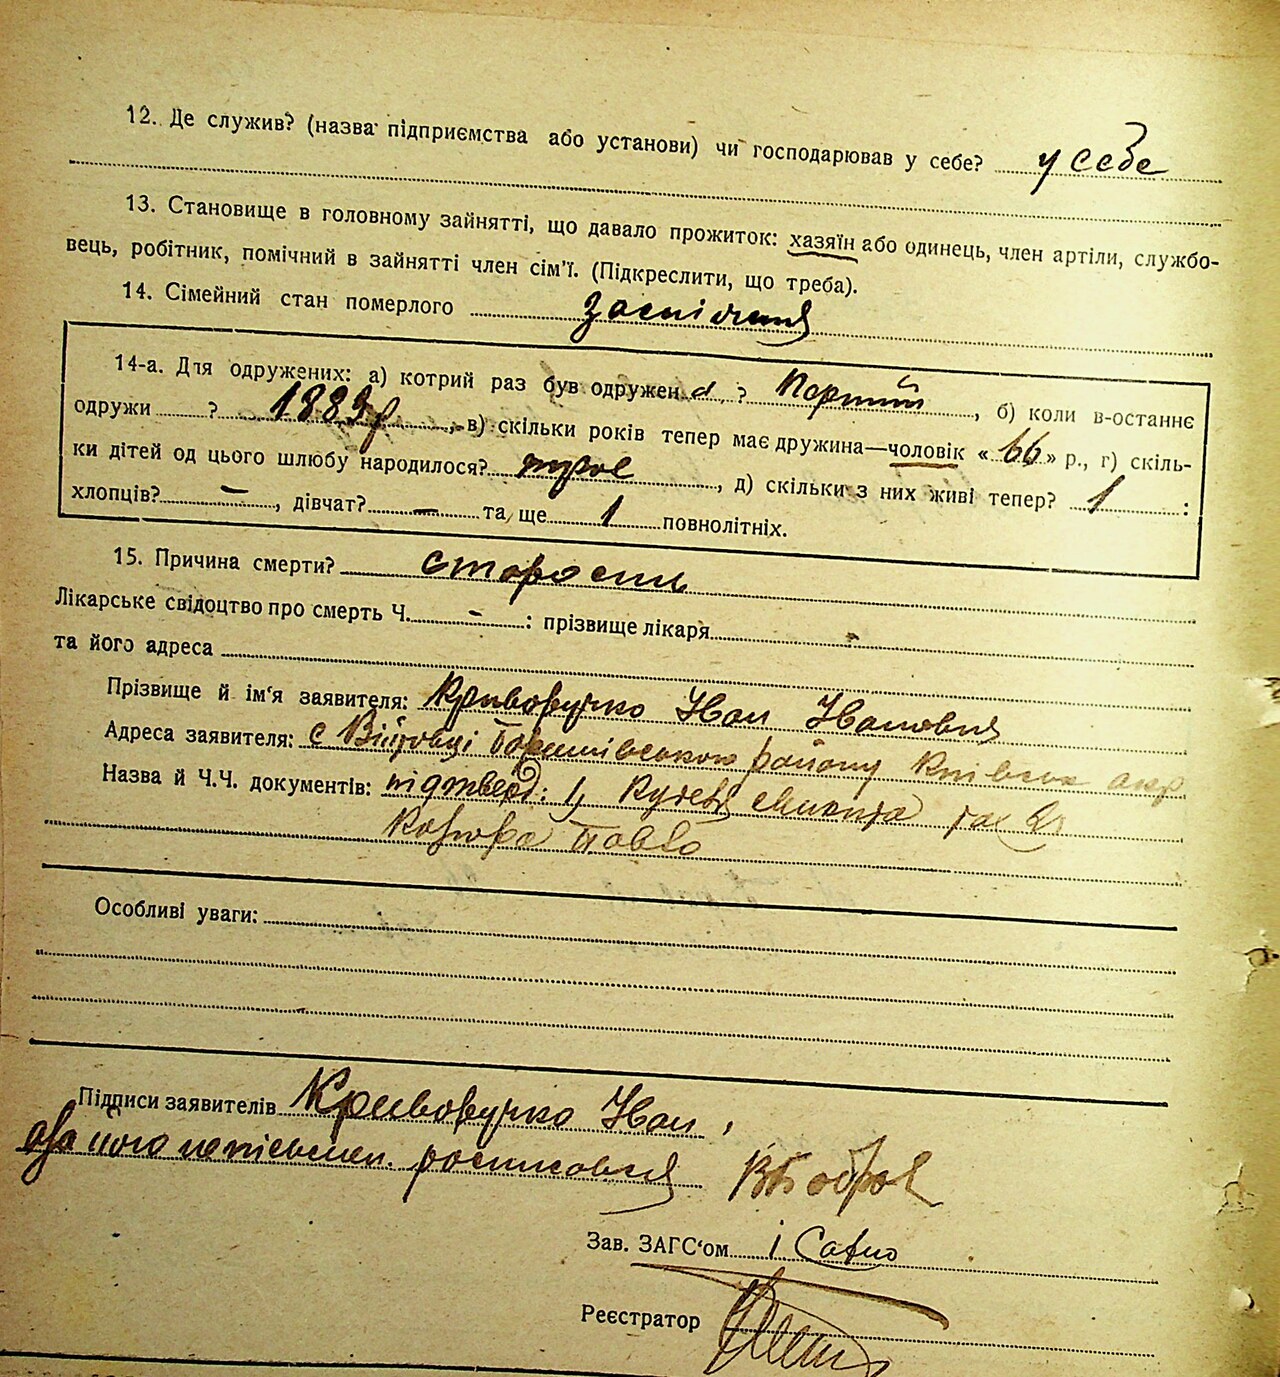 12. Де служив? (назва підприємства або установи) чи господарював у себе? у себе
13. Становище в головному зайнятті, що давало прожиток: хазяїн або одинець, член артіли, службо-
вець, робітник, помічний в зайнятті член сім'ї. (Підкреслити, що треба).
14. Сімейний стан померлого
14-а. Для одружених: а) котрий раз був одружен а ? Перший, б) коли в-останнє
одружи ? 1889 р, в) скільки років тепер має дружина—чоловік «66» р., г) скіль-
ки дітей од цього шлюбу народилося? троє, д) скільки з них живі тепер? 1 :
хлопців? —, дівчат? — та ще 1 повнолітніх.
15. Причина смерти? старость
Лікарське свідоцтво про смерть Ч. - : прізвище лікаря -
та його адреса
Прізвище й ім'я заявителя: Криворучко Іван Іванович
Адреса заявителя: с Війтовці Баришівського району Київськ окр
Назва й Ч.Ч. документів: підтверд: 1) Микита та 2)
Павло
Особливі уваги:
Підписи заявителів Криворучко Іван,
а за його неписьмен. росписався В Бобров
Зав. ЗАГС'ом
Реєстратор